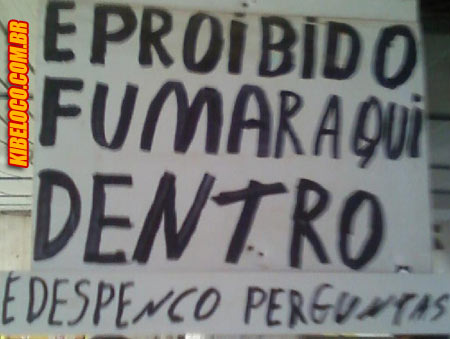 KIBELOCO.COM.BR
E PROiBiDO
FUMAR AQUI
DENTRO
E DESPENCO PERGUNTAS